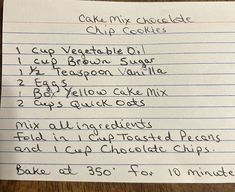 Cake Mix Chocolate
Chip Cookies
1 Cup Vegetable Oil
1 Cup Brown Sugar
1 1/2 Teaspoon Vanilla
2 Eggs
1 Box Yellow Cake Mix
2 Cups Quick Oats
Mix all ingredients
Fold in 1 Cup Toasted Pecans
and 1 Cup Chocolate Chips.
Bake at 350° for 10 minute